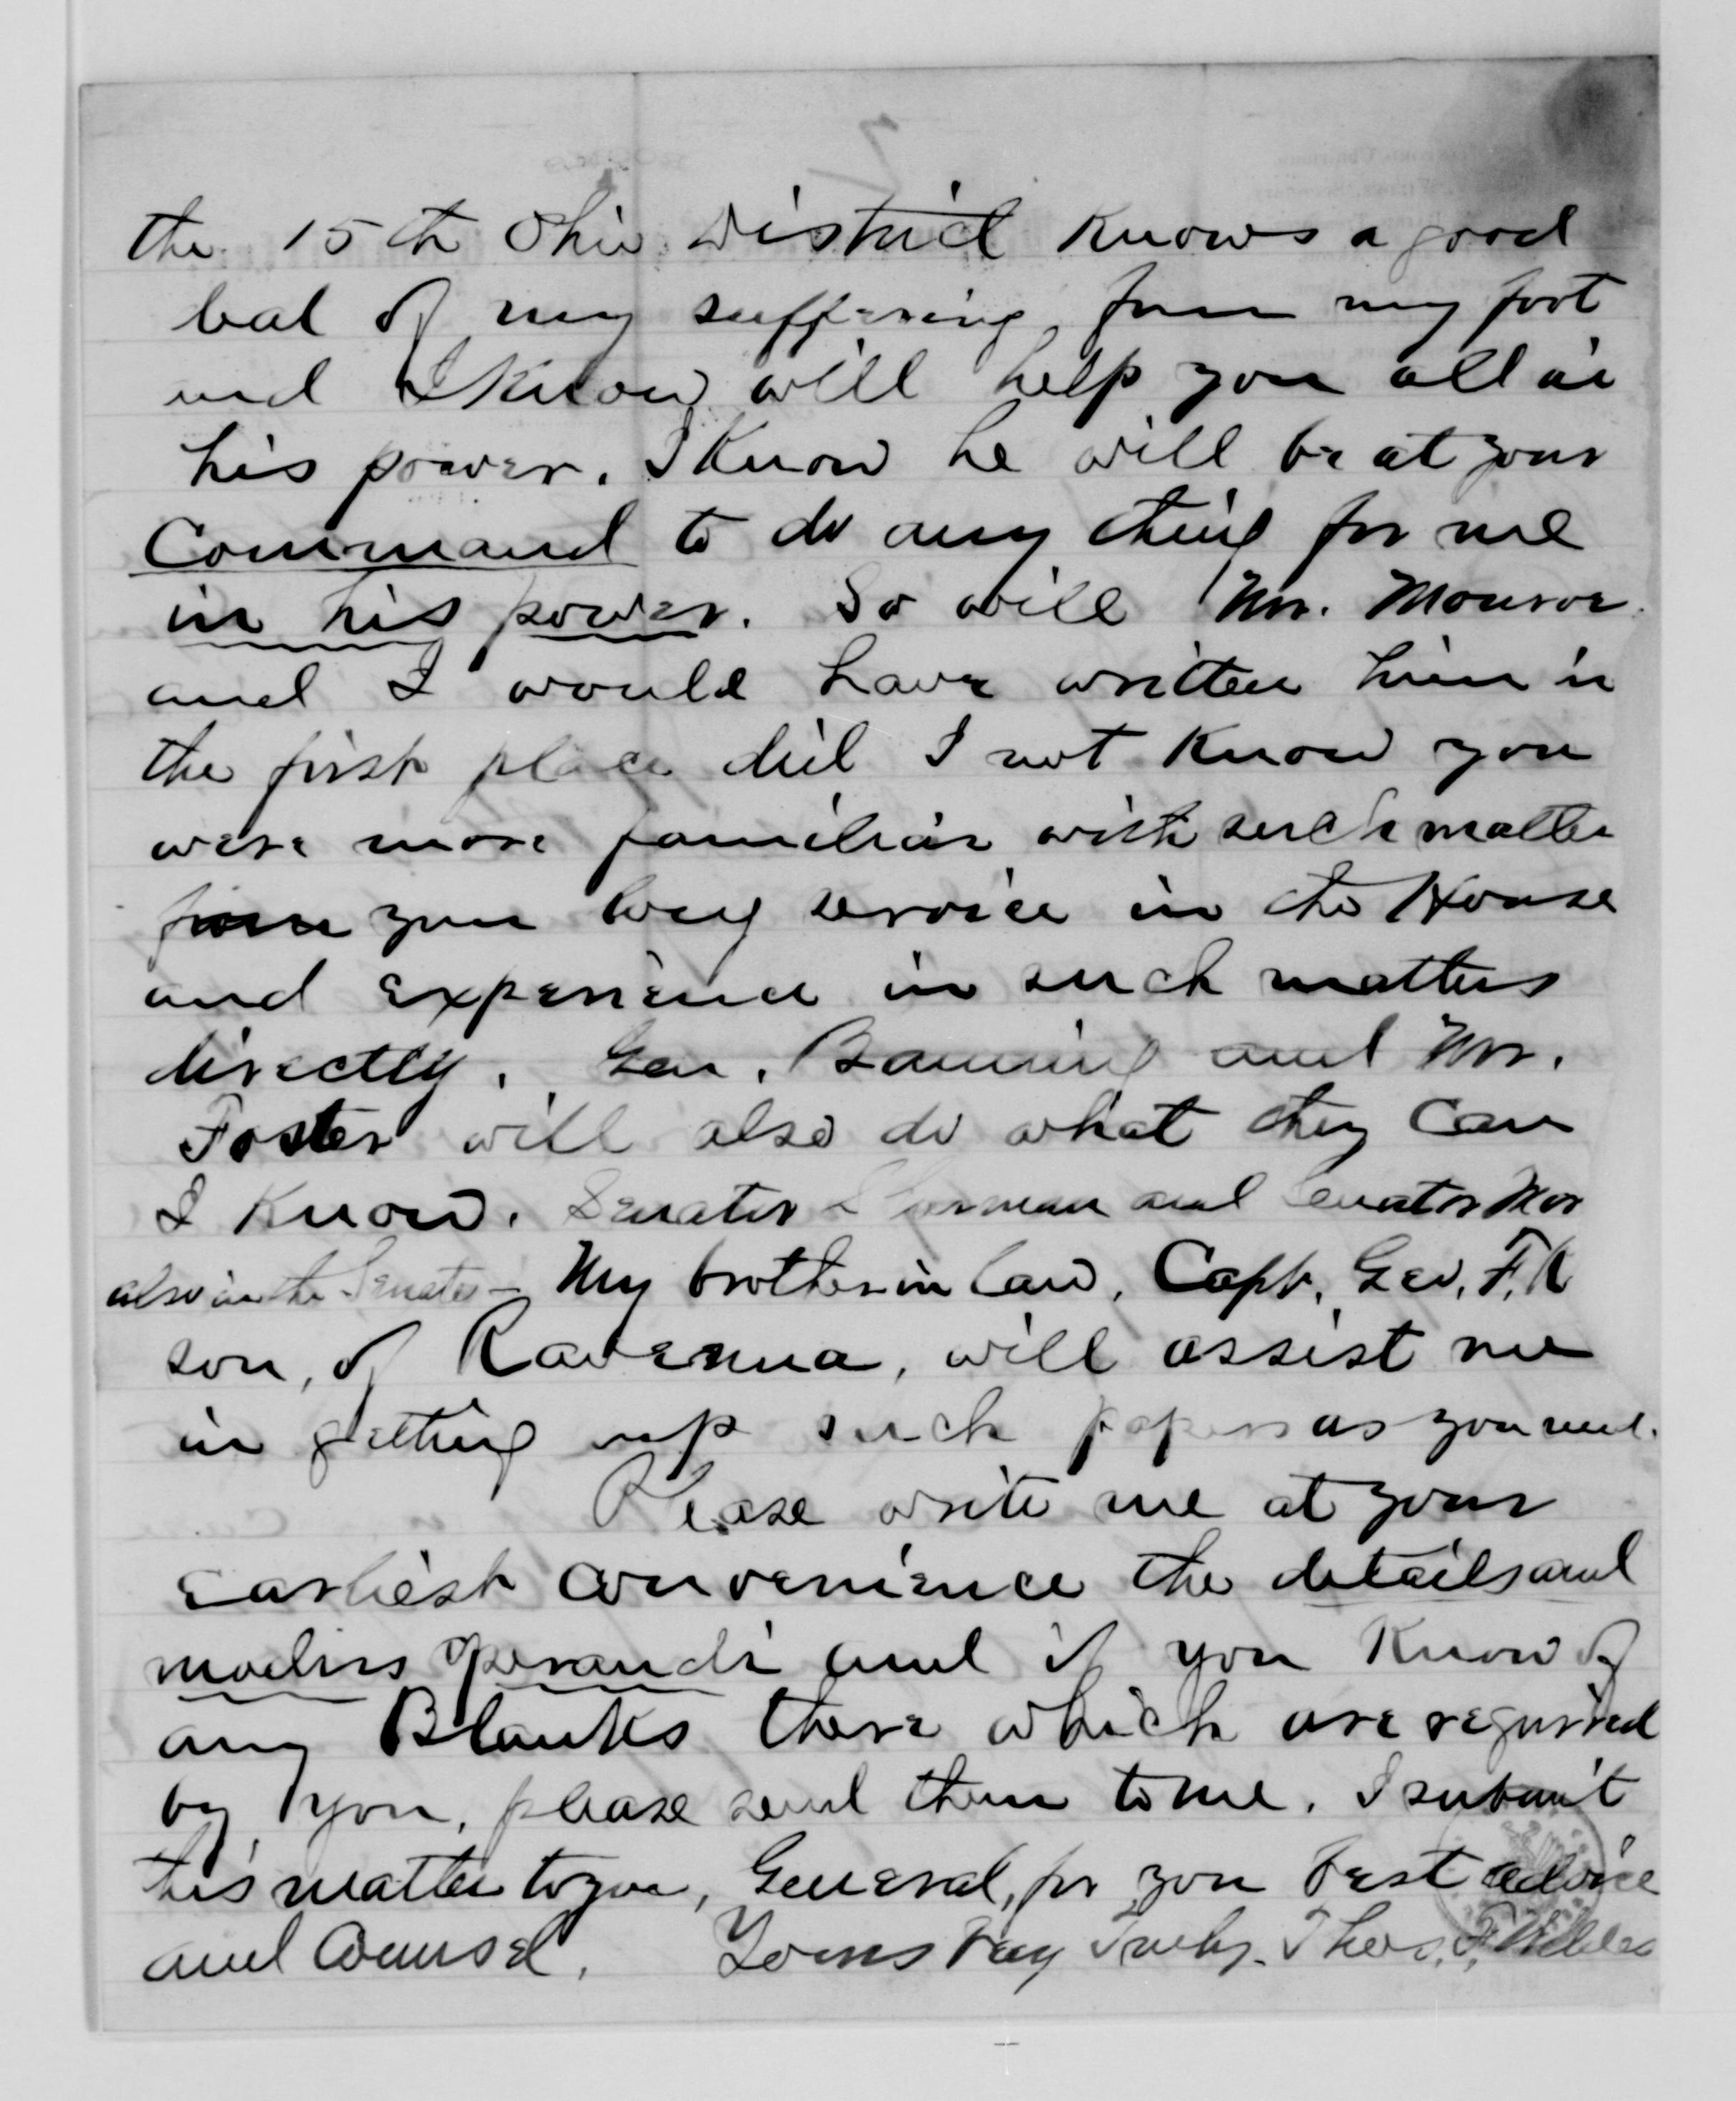 the 15th Ohio District knows a good
deal of my suffering from my foot
and I know will help you all in
his power. I know he will be at your
Command to do any thing for me
in his power. So will Mr. Monroe
and I would have written him in
the first place did I not know you
were more familiar with such matter
from your long service in the House
and experience in such matters
directly. Gen. Banning and Mr.
Foster will also do what they can
I know. Senator Sherman and Senator
also in the Senate – My brother in law, Capt. Geo. F. R
son, of Ravenna, will assist me
in getting up such papers as you need.
Please write me at your
earliest convenience the details and
modus operandi and if you know of
any Blanks there which are required
by you, please send them to me. I submit
this matter to you, General, for your best advice
and Counsel. Yours very Truly. Thos. F.